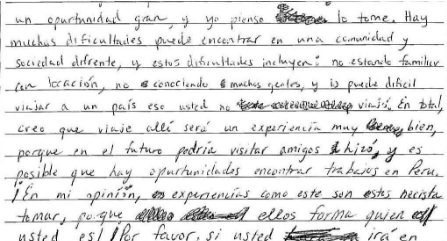 un opurtunidad gran, y yo pienso lo tome. Hay
muchas dificultades puede encontrar en una comunidad y
sociedad difrente, y estos dificultades incluyen: no estando familiar
con locación, no conociendo muchas gentes, y is puede dificil
viajar a un país eso usted no viajó. En total,
creo que viaje allí será un experiencia muy bien,
porque en el futuro podría visitar amigos hizó, y es
posible que hay opurtunidades encontrar trabajos en Peru.
¡En mi opinión, experiencias como este son
tomar, porque ellos forma quien
usted es! ¡Por favor, si usted ira en